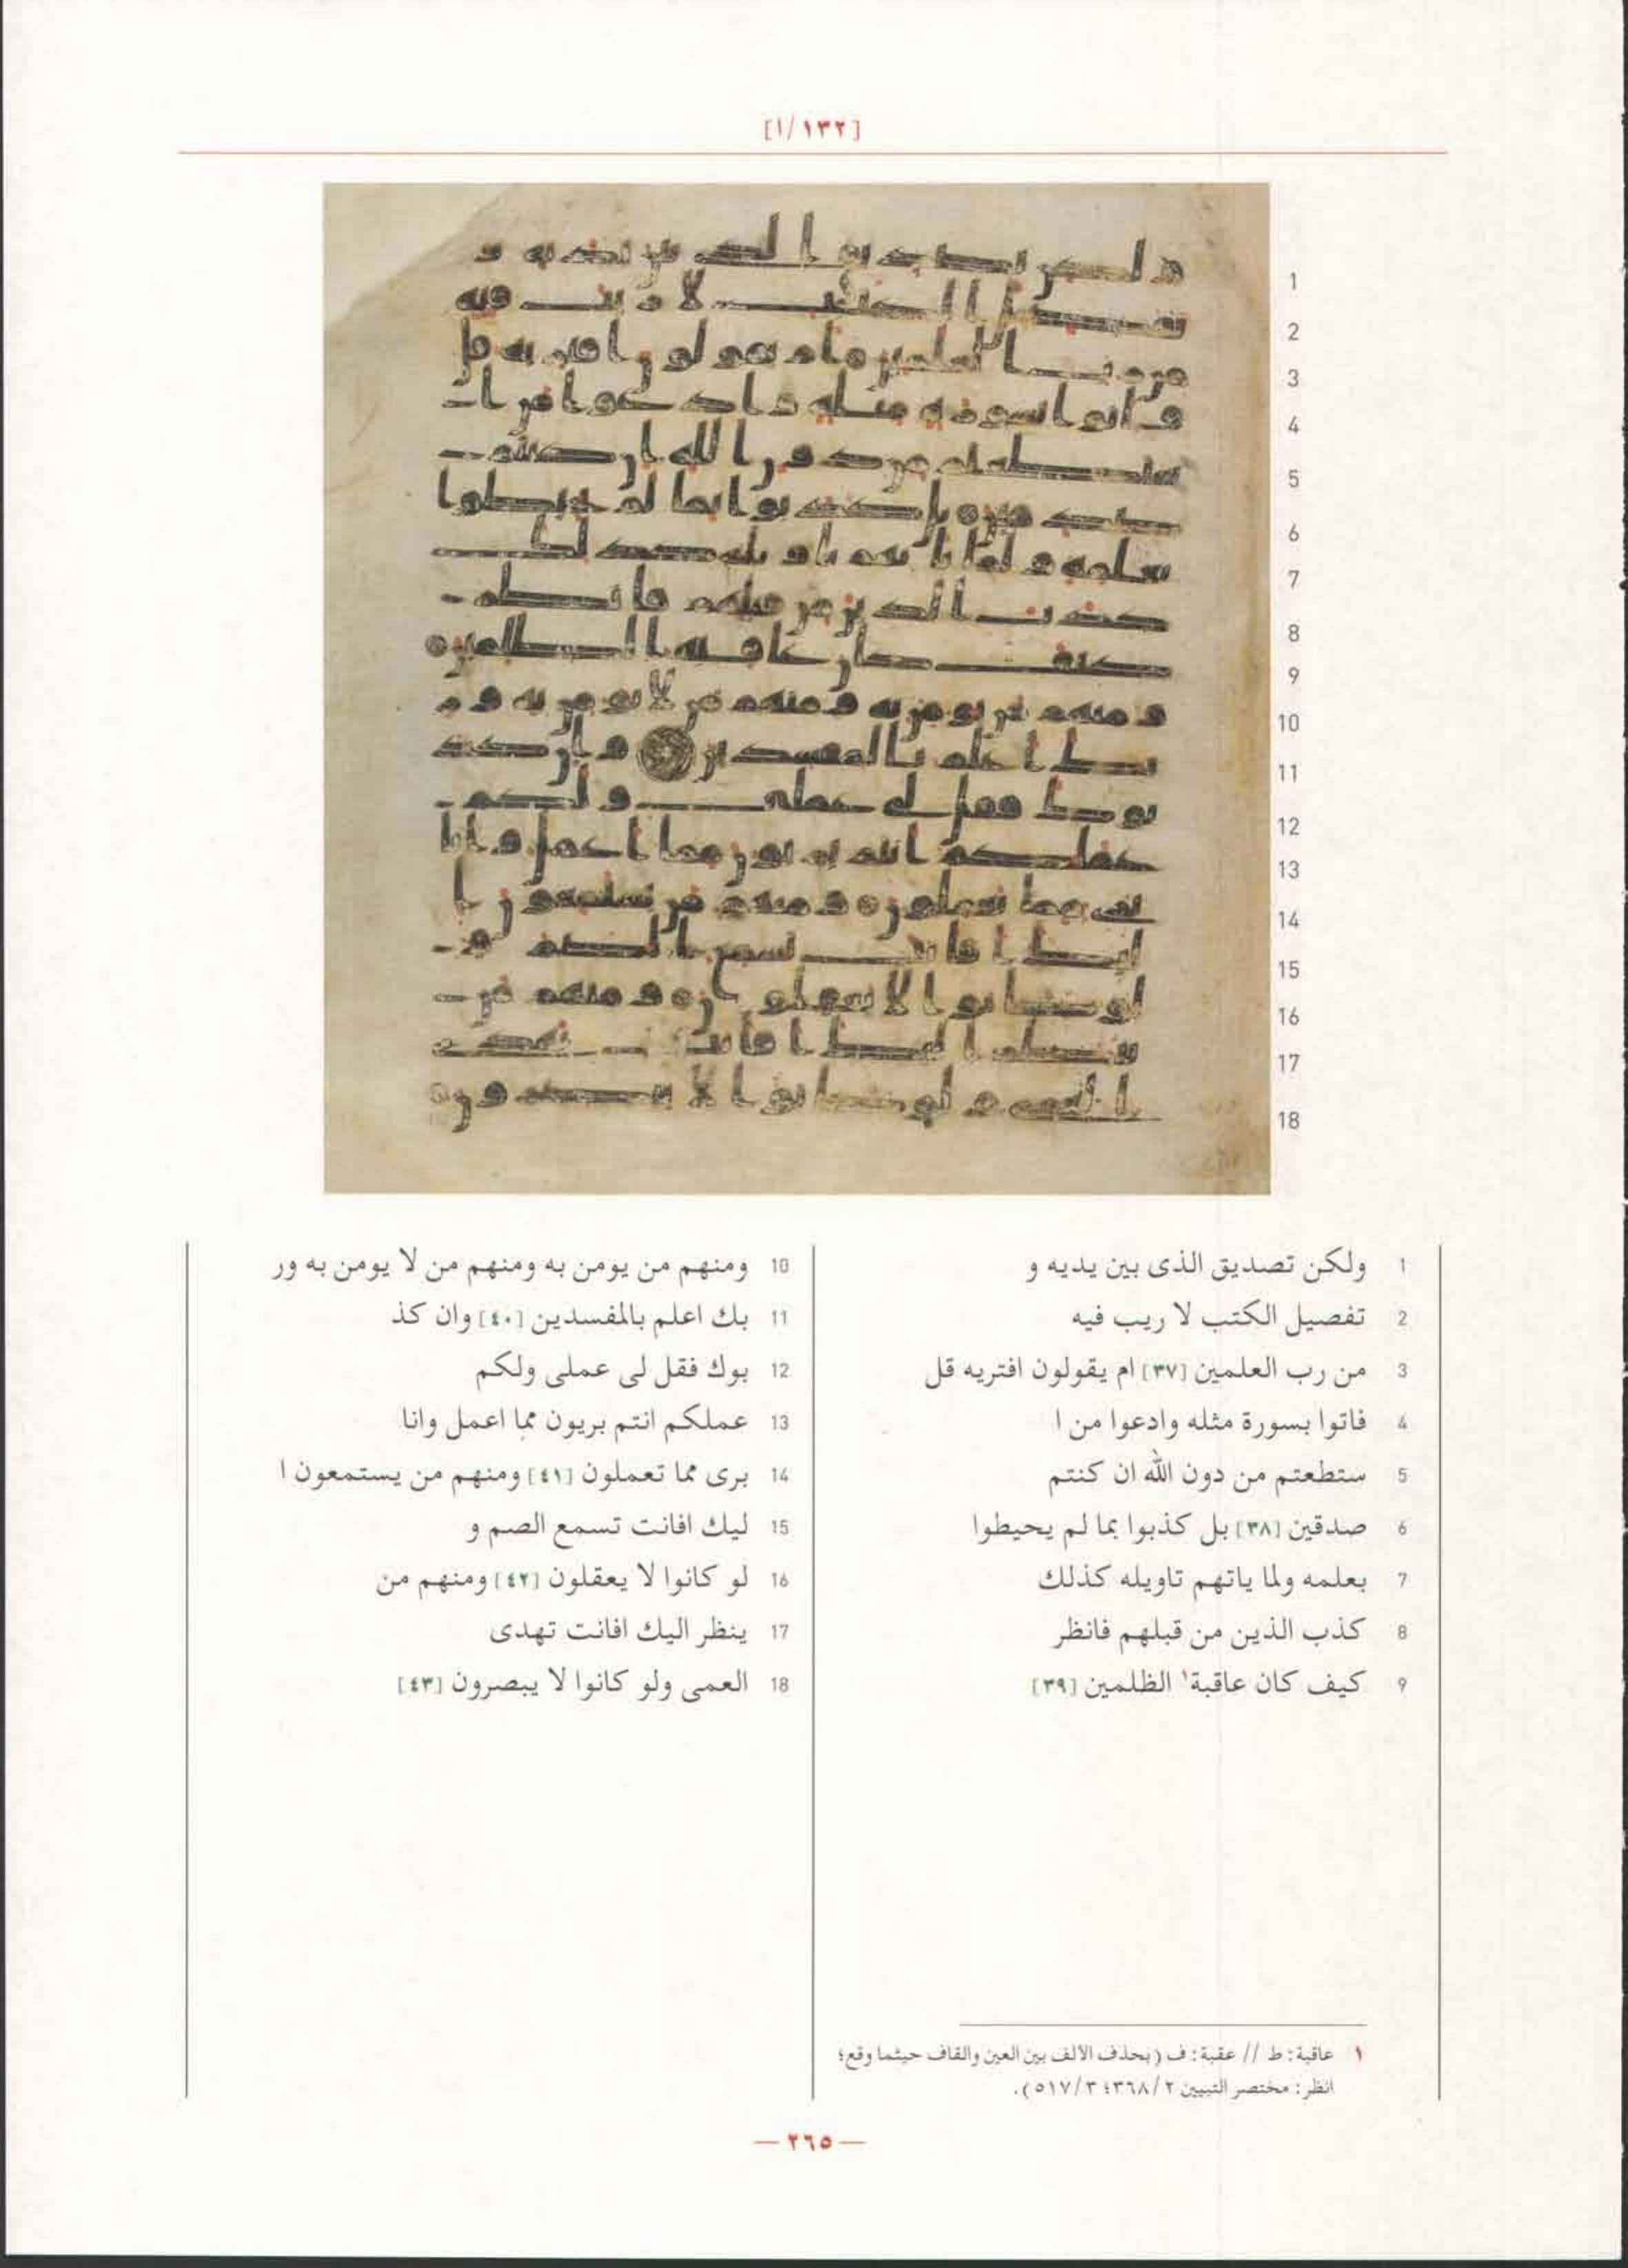 [١٣٢/ا]
1 ولكن تصديق الذى بين يديه و
2 تفصيل الكتب لا ريب فيه
3 من رب العلمين [٣٧] ام يقولون افتريه قل
4 فاتوا بسورة مثله وادعوا من ا
5 ستطعتم من دون الله ان كنتم
6 صدقين [٣٨] بل كذبوا بما لم يحيطوا
7 بعلمه ولما ياتهم تاويله كذلك
8 كذب الذين من قبلهم فانظر
9 كيف كان عاقبة١ الظلمين [٣٩]
10 ومنهم من يومن به ومنهم من لا يومن به ور
11 بك اعلم بالمفسدين [٤٠] وان كذ
12 بوك فقل لى عملى ولكم
13 عملكم انتم بريون مما اعمل وانا
14 برى مما تعملون [٤١] ومنهم من يستمعون ا
15 ليك افانت تسمع الصم و
16 لو كانوا لا يعقلون [٤٢] ومنهم من
17 ينظر اليك افانت تهدى
18 العمى ولو كانوا لا يبصرون [٤٣]
١ عاقبة: ط // عقبة: ف (بحذف الالف بين العين والقاف حيثما وقع؛
انظر: مختصر التبيين ٢/٣٦٨؛ ٣/٥١٧).
— ٢٦٥ —